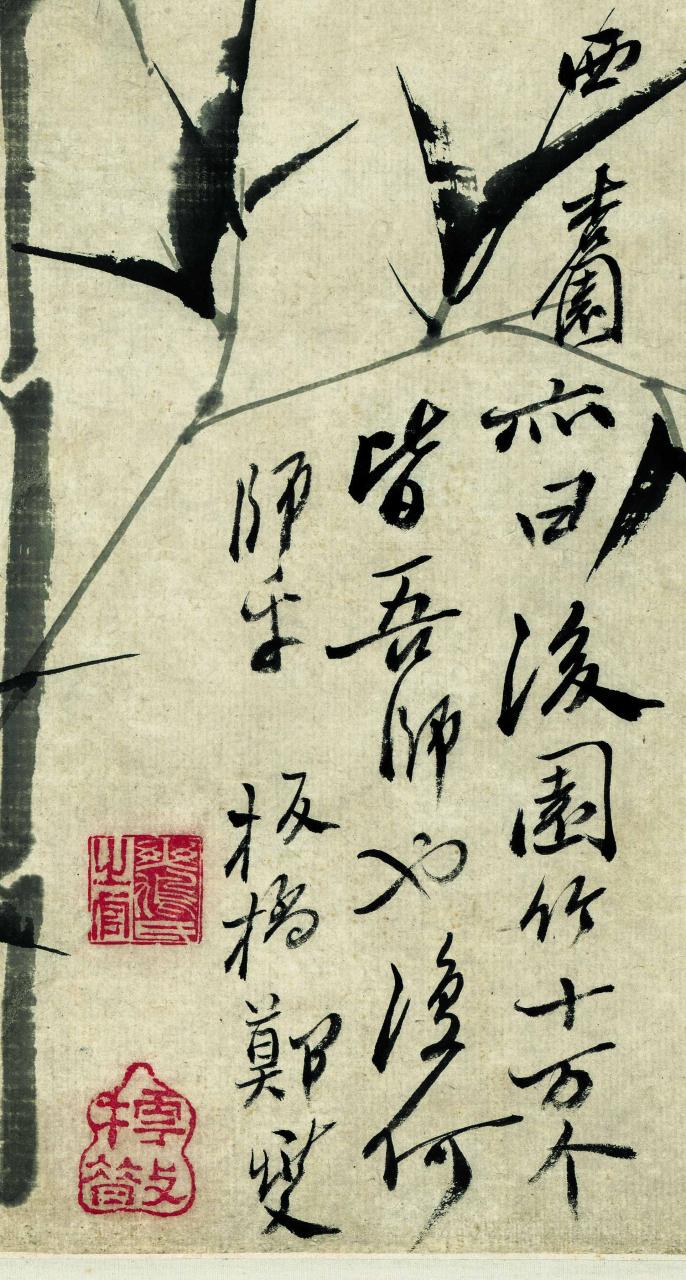 西
亦曰後園竹十万个
皆吾師也復何
師乎 板橋鄭燮